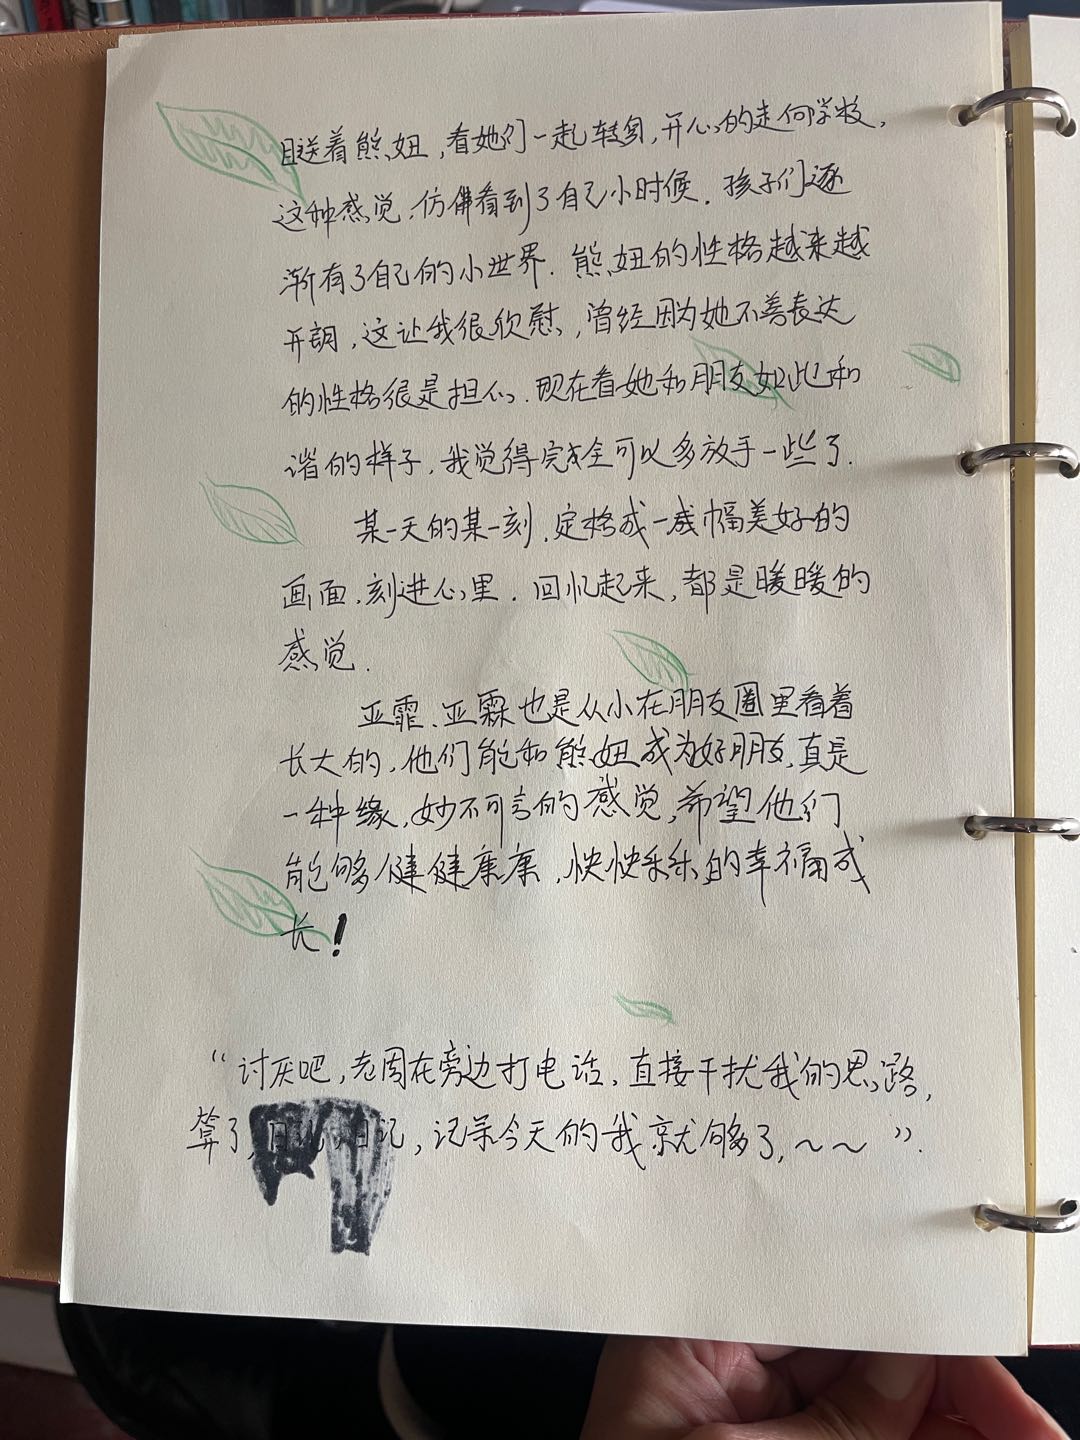 目送着熊妞，看她们一起转身，开心的走向学校，
这种感觉，仿佛看到了自己小时候．孩子们逐
渐有了自己的小世界．熊妞的性格越来越
开朗，这让我很欣慰，曾经因为她不善表达
的性格很是担心．现在看她和朋友如此和
谐的样子，我觉得完全可以多放手一些了．
某一天的某一刻．定格成一幅美好的
画面，刻进心里．回忆起来，都是暖暖的
感觉．
亚霏、亚霖也是从小在朋友圈里看着
长大的，他们能和熊妞成为好朋友，真是
一种缘，妙不可言的感觉，希望他们
能够健健康康，快快乐乐的幸福成
长！
“讨厌吧，老周在旁边打电话，直接干扰我的思路，
算了，日记，记录今天的我就够了，～～”．